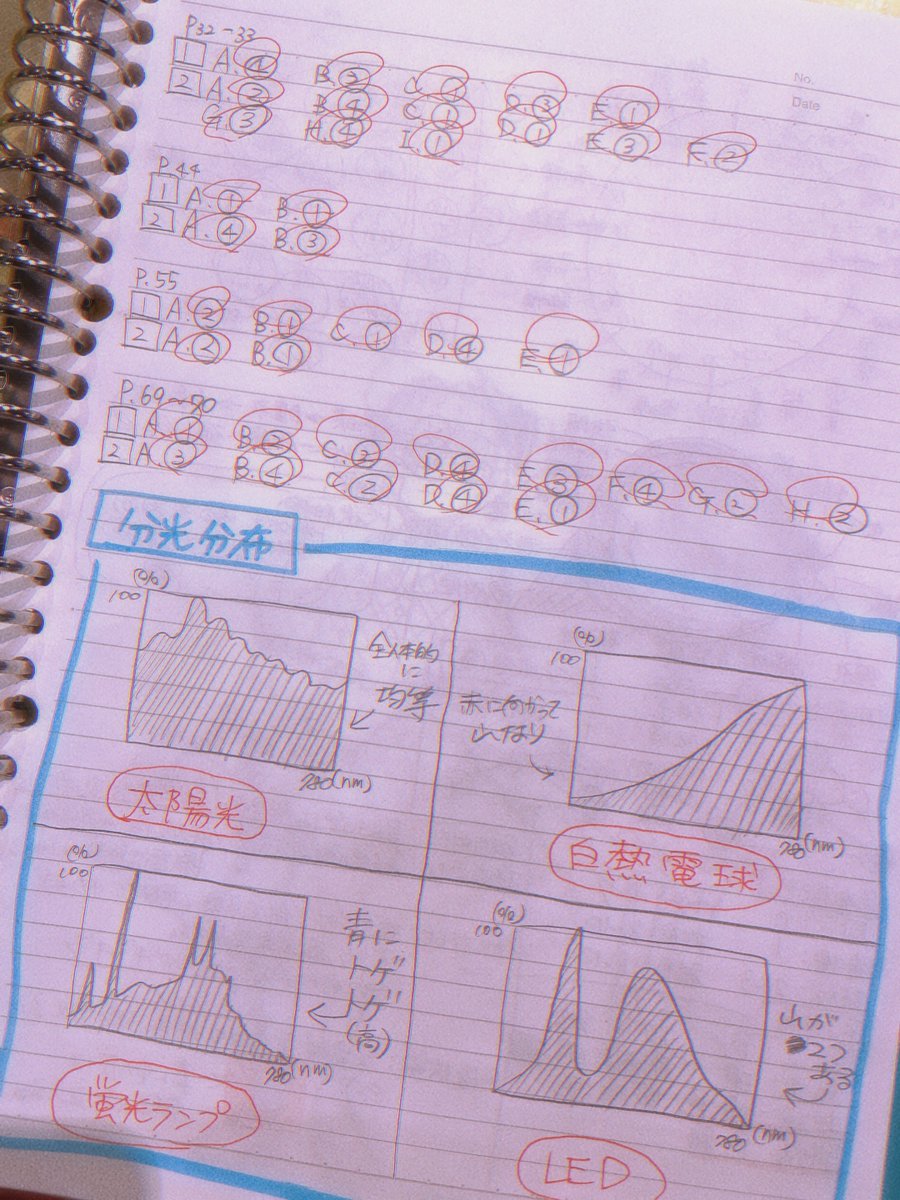 No.
Date
P32-33
1 A.④ B.② C.② D.③ E.①
2 A.② B.④ C.① D.① E.③ F.②
G.③ H.④ I.①
P.44
1 A.① B.①
2 A.④ B.③
P.55
1 A.② B.① C.① D.④ E.①
2 A.② B.①
P.69~70
1 A.① B.② C.③ D.④ E.③ F.④ G.② H.②
2 A.③ B.④ C.② D.④ E.①
分光分布
(%)
100
全体的
に
均等
780(nm)
太陽光
(%)
100
赤に向かって
山なり
780(nm)
白熱電球
(%)
100
青に
トゲ
トゲ
(高)
780(nm)
蛍光ランプ
(%)
100
山が
2つ
ある
780(nm)
LED